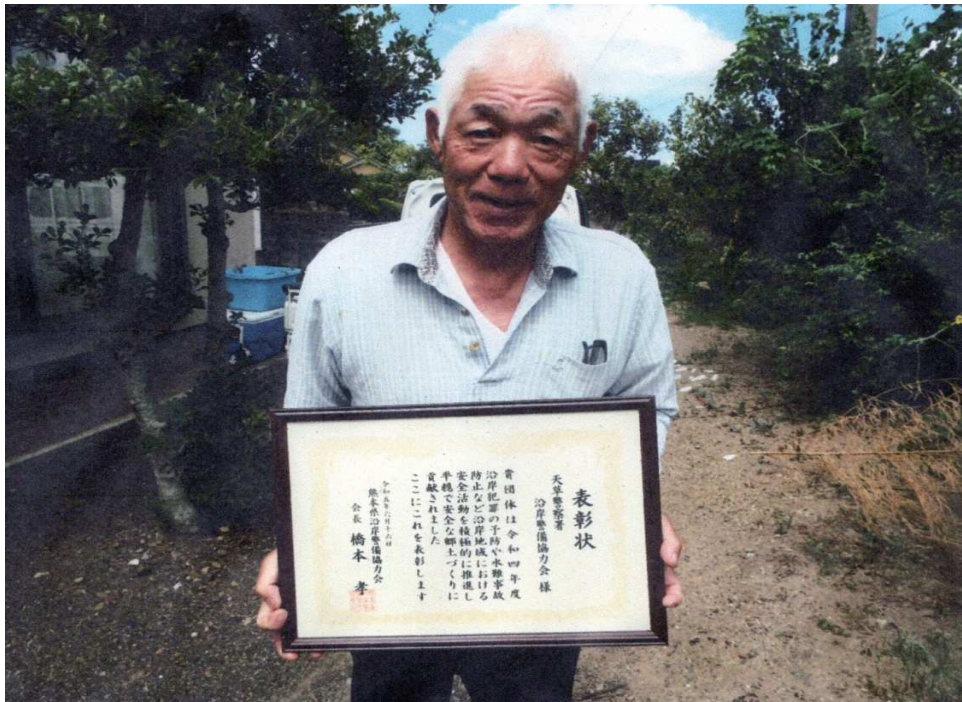 表彰状
天草警察署
沿岸警備協力会 様
貴団体は令和四年度
沿岸犯罪の予防や水難事故
防止など沿岸地域における
安全活動を積極的に推進し
平穏で安全な郷土づくりに
貢献されました
ここにこれを表彰します
令和五年六月十六日
熊本県沿岸警備協力会
会長 橋本 孝